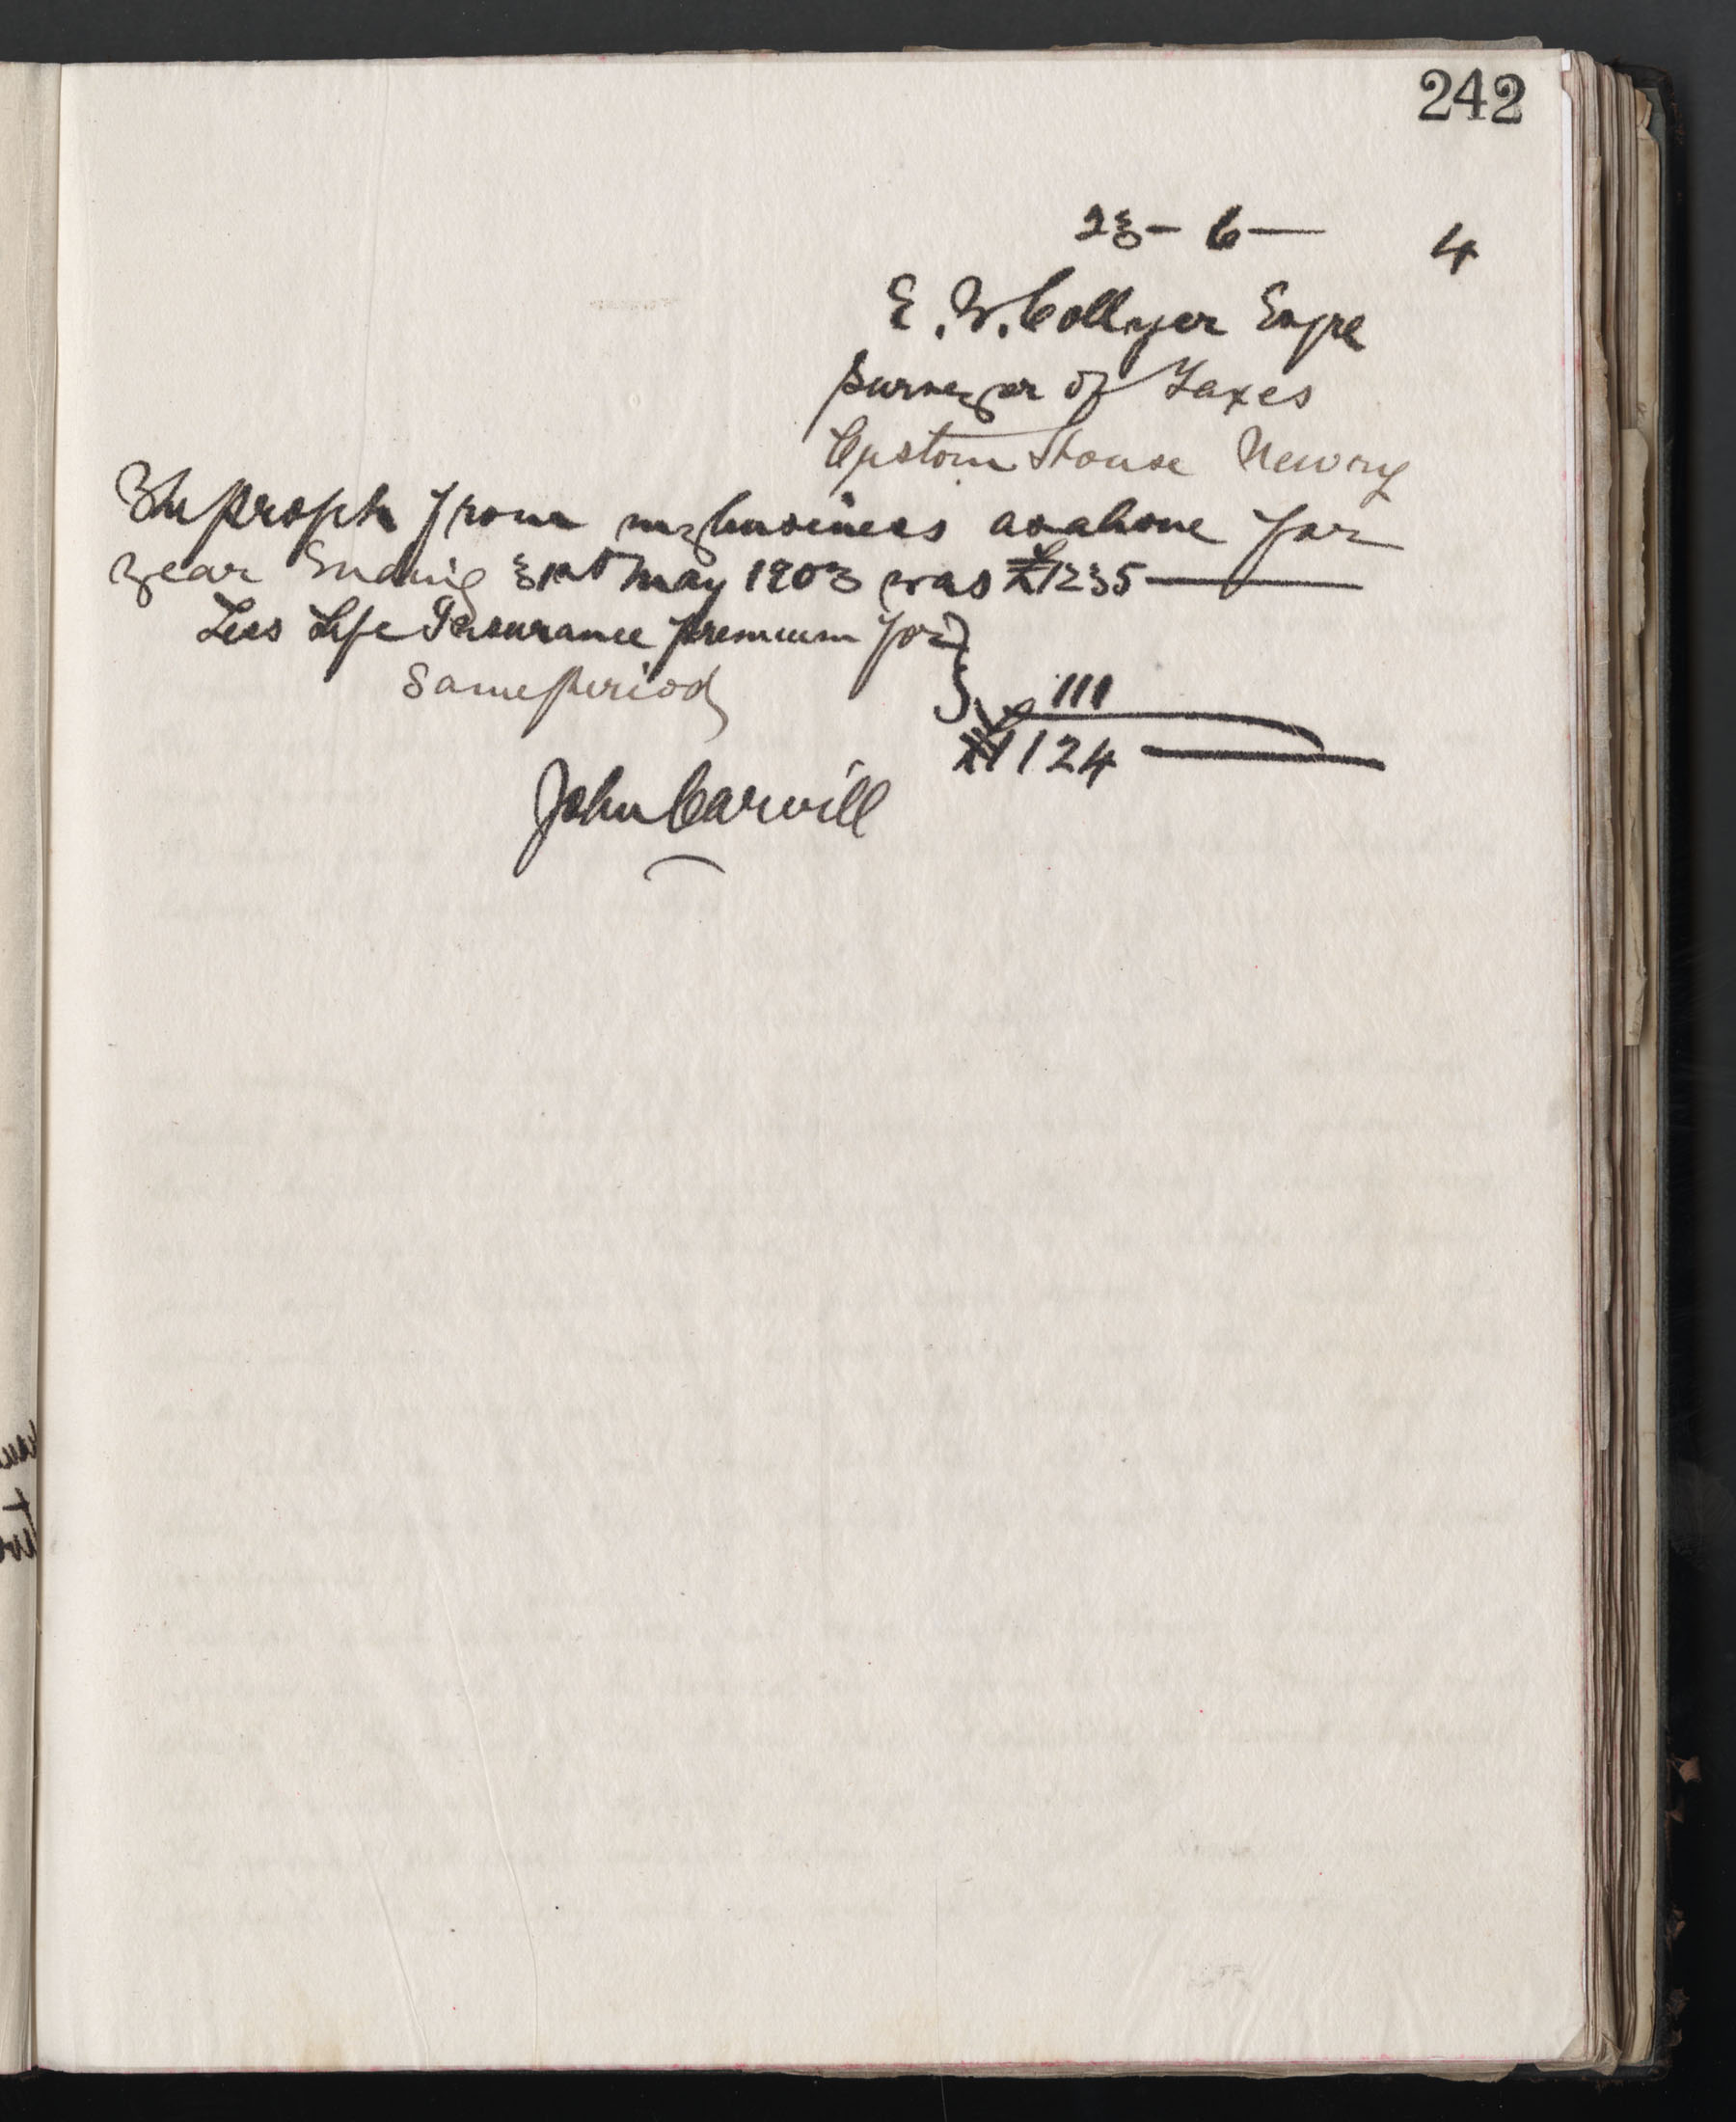 242
23- 6- 4
E. W. Collyer Esqre
Surveyor of Taxes
Custom House Newry
The profit from my business as above for
year Ending 31st May 1903 was £1235
Less Life Insurance premium for }
same period } 111
£1124
John Carvill